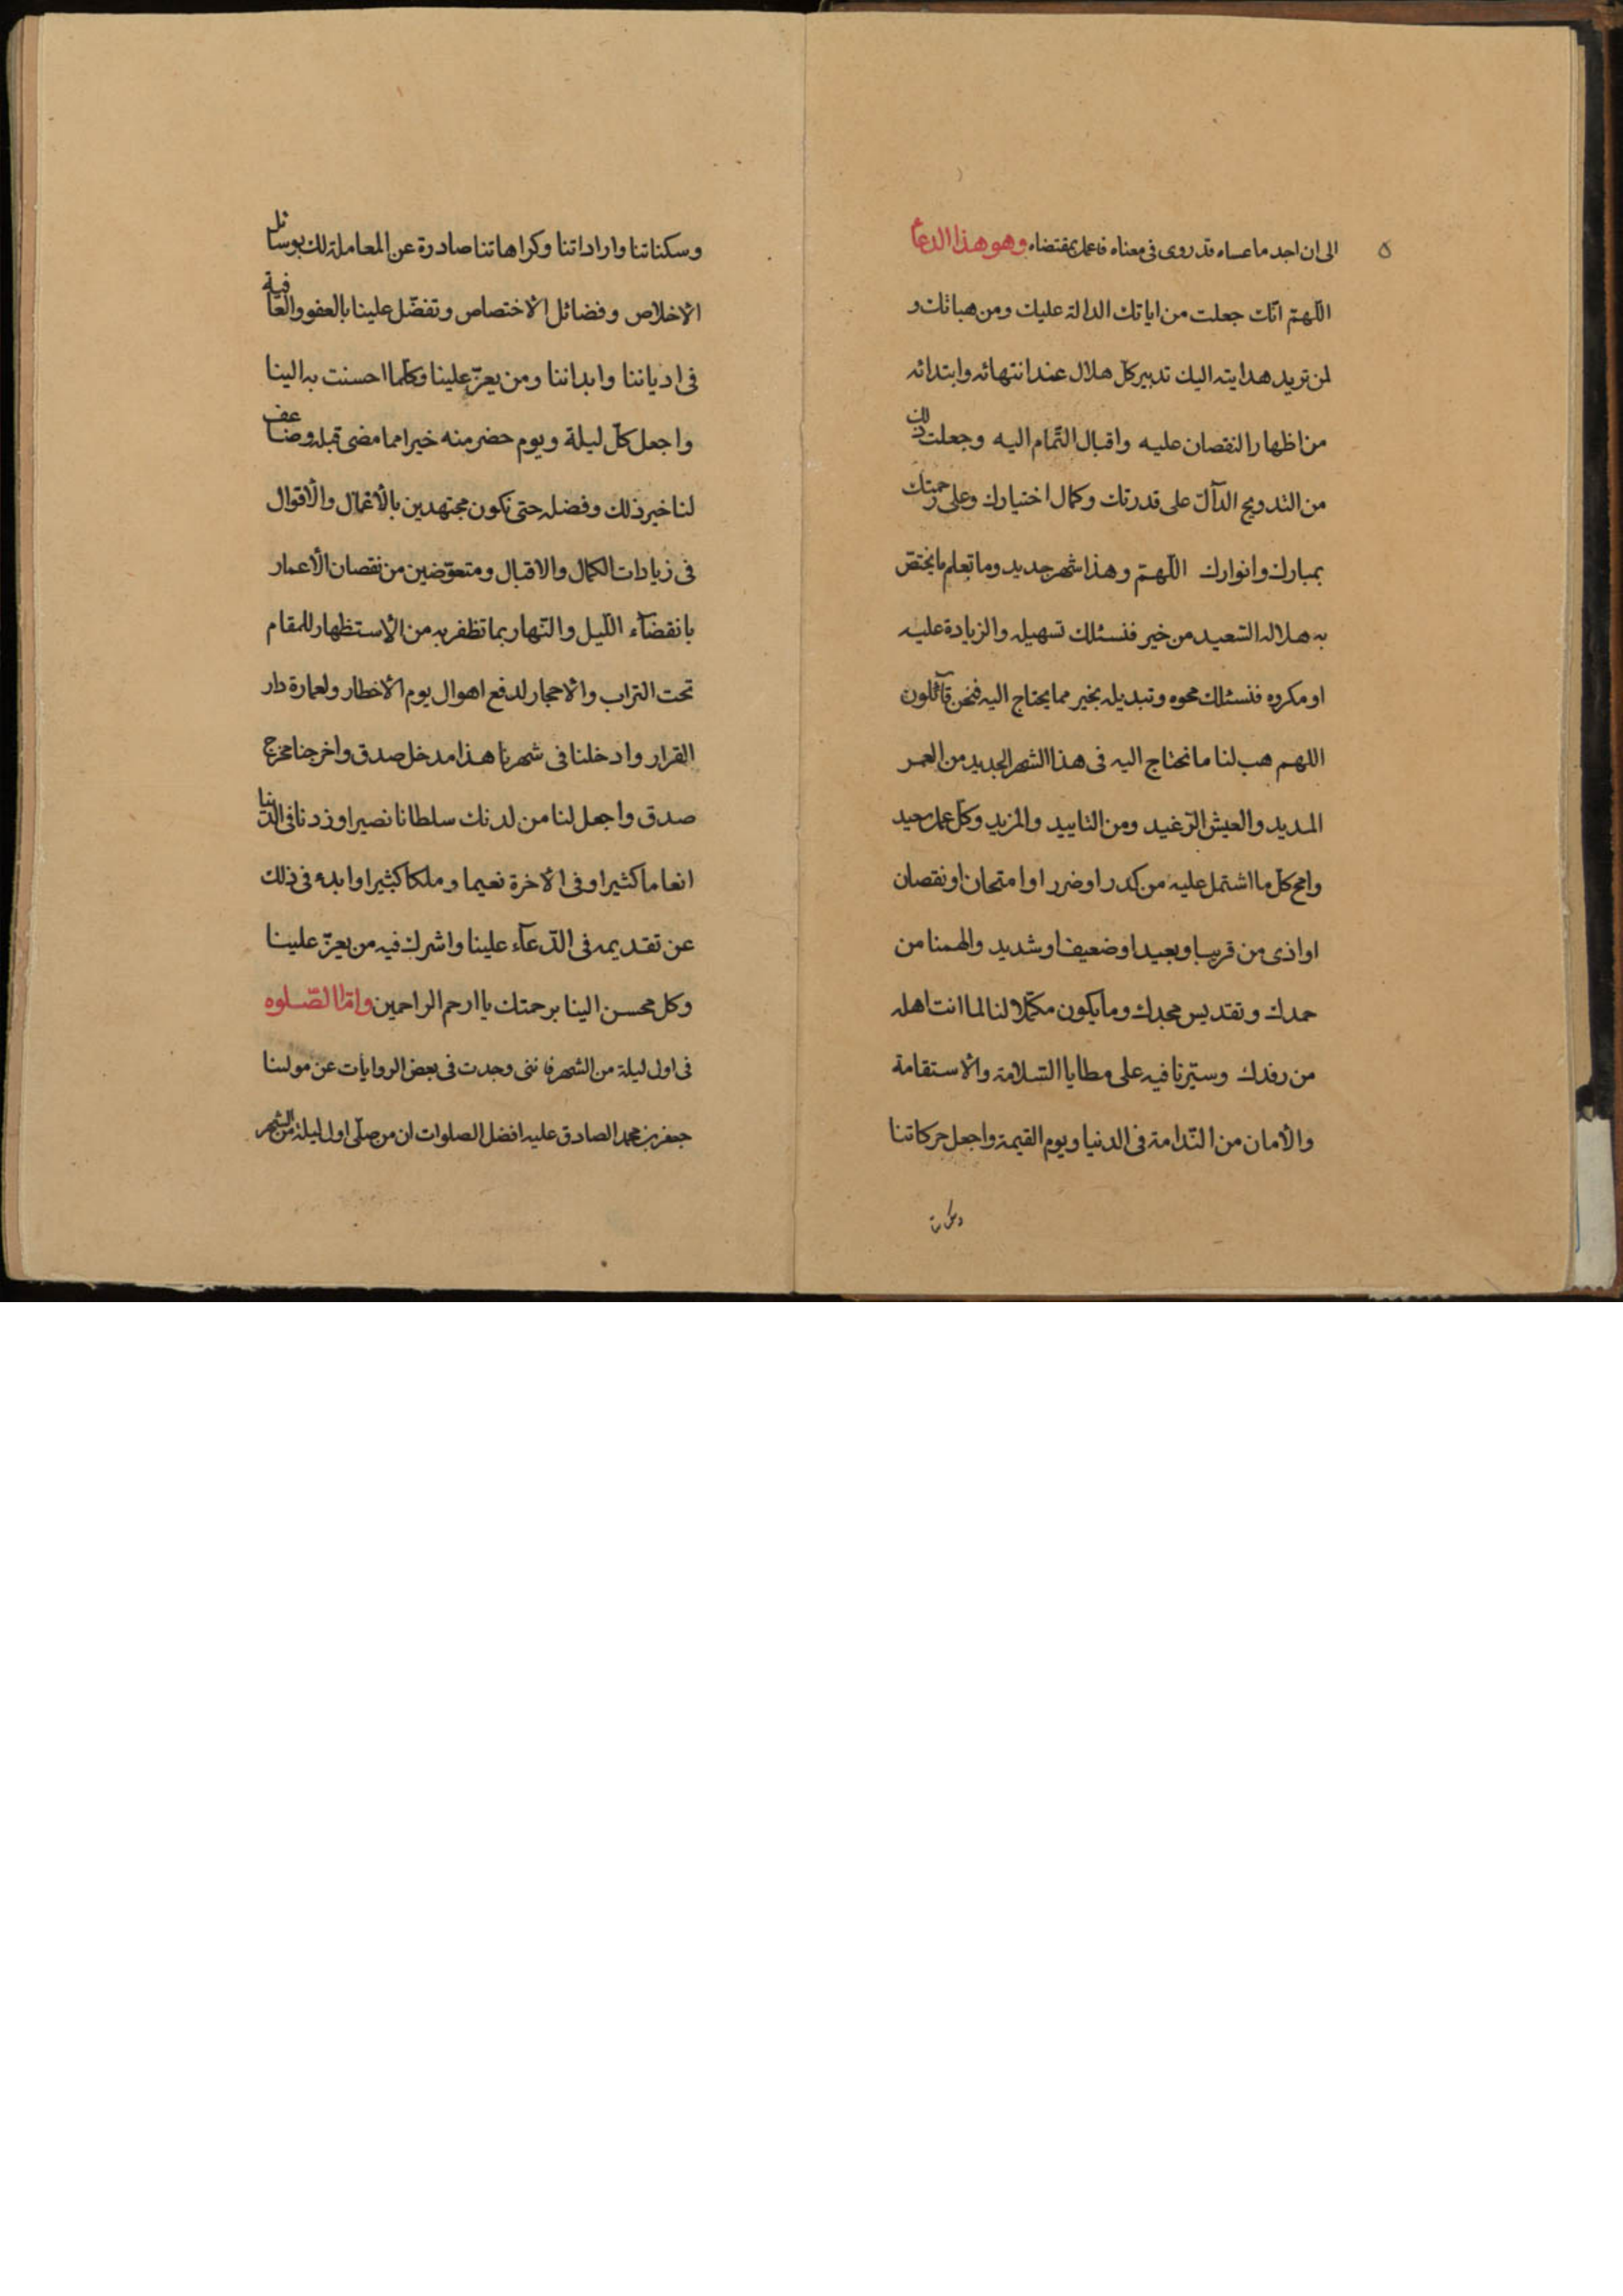 ٥
الى ان اجد ما عساه قد روى فى معناه فاعمل بمقتضاه وهو هذا الدعا
اللّهمّ انّك جعلت من اياتك الدالة عليك ومن هباتك و
لمن تريد هدايته اليك تدبير كلّ هلال عند انتهائه وابتدائه
من اظهار النقصان عليه واقبال التّمام اليه وجعلت ذلك
من التدويج الدآلّ على قدرتك وكمال اختيارك وعلى رحمتك
بمبارك وانوارك اللّهمّ وهذا شهر جديد وما تعلم ما يختصّ
به هلاله السّعيد من خير فنسئلك تسهيله والزيادة عليه
او مكروه فنسئلك محوه وتبديله بخير مما يحتاج اليه فنحن قآئلون
اللهم هب لنا ما نحتاج اليه فى هذا الشهر الجديد من العمر
المديد والعيش الرّغيد ومن التاييد والمزيد وكلّ عمل سعيد
وامح كلّ ما اشتمل عليه من كدر او ضرر او امتحان او نقصان
او اذى من قريب او بعيد او ضعيف او شديد والهمنا من
حمدك وتقديس مجدك وما يكون مكمّلا لنا لما انت اهله
من رفدك وسيّرنا فيه على مطايا السّلامة والاستقامة
والأمان من النّدامة فى الدنيا ويوم القيمة واجعل حركاتنا
وسكناتنا واراداتنا وكراهاتنا صادرة عن المعاملة لك بوسائل
الاخلاص وفضائل الاختصاص وتفضّل علينا بالعفو والعافية
فى ادياننا وابداننا ومن يعزّ علينا وكلّما احسنت به الينا
واجعل كلّ ليلة ويوم حضر منه خيرا مما مضى قبله وضاعف
لنا خير ذلك وفضله حتى نكون مجتهدين بالأعمال والأقوال
فى زيادات الكمال والاقبال ومتعوّضين من نقصان الأعمار
بانقضآء اللّيل والنّهار بما تظفر به من الاستظهار للمقام
تحت التراب والاحجار لدفع اهوال يوم الاخطار ولعمارة دار
القرار وادخلنا فى شهرنا هذا مدخل صدق واخرجنا مخرج
صدق واجعل لنا من لدنك سلطانا نصيرا وزدنا فى الدّنيا
انعاما كثيرا وفى الاخرة نعيما وملكا كبيرا وابدء فى ذلك
عن تقديمه فى الدّعآء علينا واشرك فيه من يعزّ علينا
وكل محسن الينا برحمتك يا ارحم الراحمين وامّا الصّلوه
فى اول ليلة من الشهر فاننى وجدت فى بعض الروايات عن مولىنا
جعفر بن محمد الصادق عليه افضل الصلوات ان من صلّى اول ليلة من الشهر